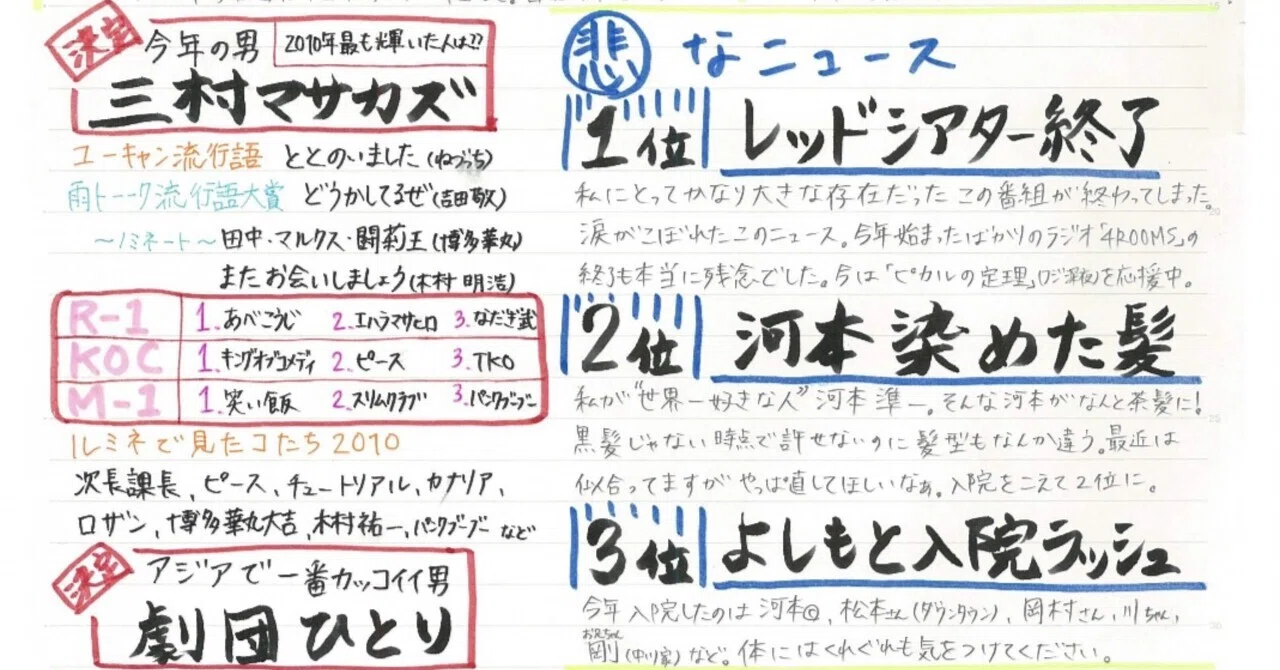 決定
今年の男
2010年最も輝いた人は!?
三村マサカズ
ユーキャン流行語 ととのいました(ねづっち)
雨トーーク流行語大賞 どうかしてるぜ(吉田敬)
〜ノミネート〜 田中・マルクス・闘莉王(博多華丸)
またお会いしましょう(木村明浩)
R-1 1.あべこうじ 2.エハラマサヒロ 3.なだぎ武
KOC 1.キングオブコメディ 2.ピース 3.TKO
M-1 1.笑い飯 2.スリムクラブ 3.パンクブーブー
ルミネで見たコたち2010
次長課長、ピース、チュートリアル、カナリア、
ロザン、博多華丸大吉、木村祐一、パンクブーブー など
決定
アジアで一番カッコイイ男
劇団ひとり
悲なニュース
1位 レッドシアター終了
私にとってかなり大きな存在だったこの番組が終わってしまった。
涙がこぼれたこのニュース。今年始まったばかりのラジオ「4ROOMS」の
終了も本当に残念でした。今は「ピカルの定理」(フジ深夜)を応援中。
2位 河本染めた髪
私が"世界一好きな人"河本準一。そんな河本がなんと茶髪に!
黒髪じゃない時点で許せないのに髪型もなんか違う。最近は
似合ってますがやっぱ直してほしいなぁ。入院をこえて2位に。
3位 よしもと入院ラッシュ
今年入院したのは河本、松本さん(ダウンタウン)、岡村さん、川ちゃん、
お兄ちゃん
剛(中川家)など。体にはくれぐれも気をつけてください。